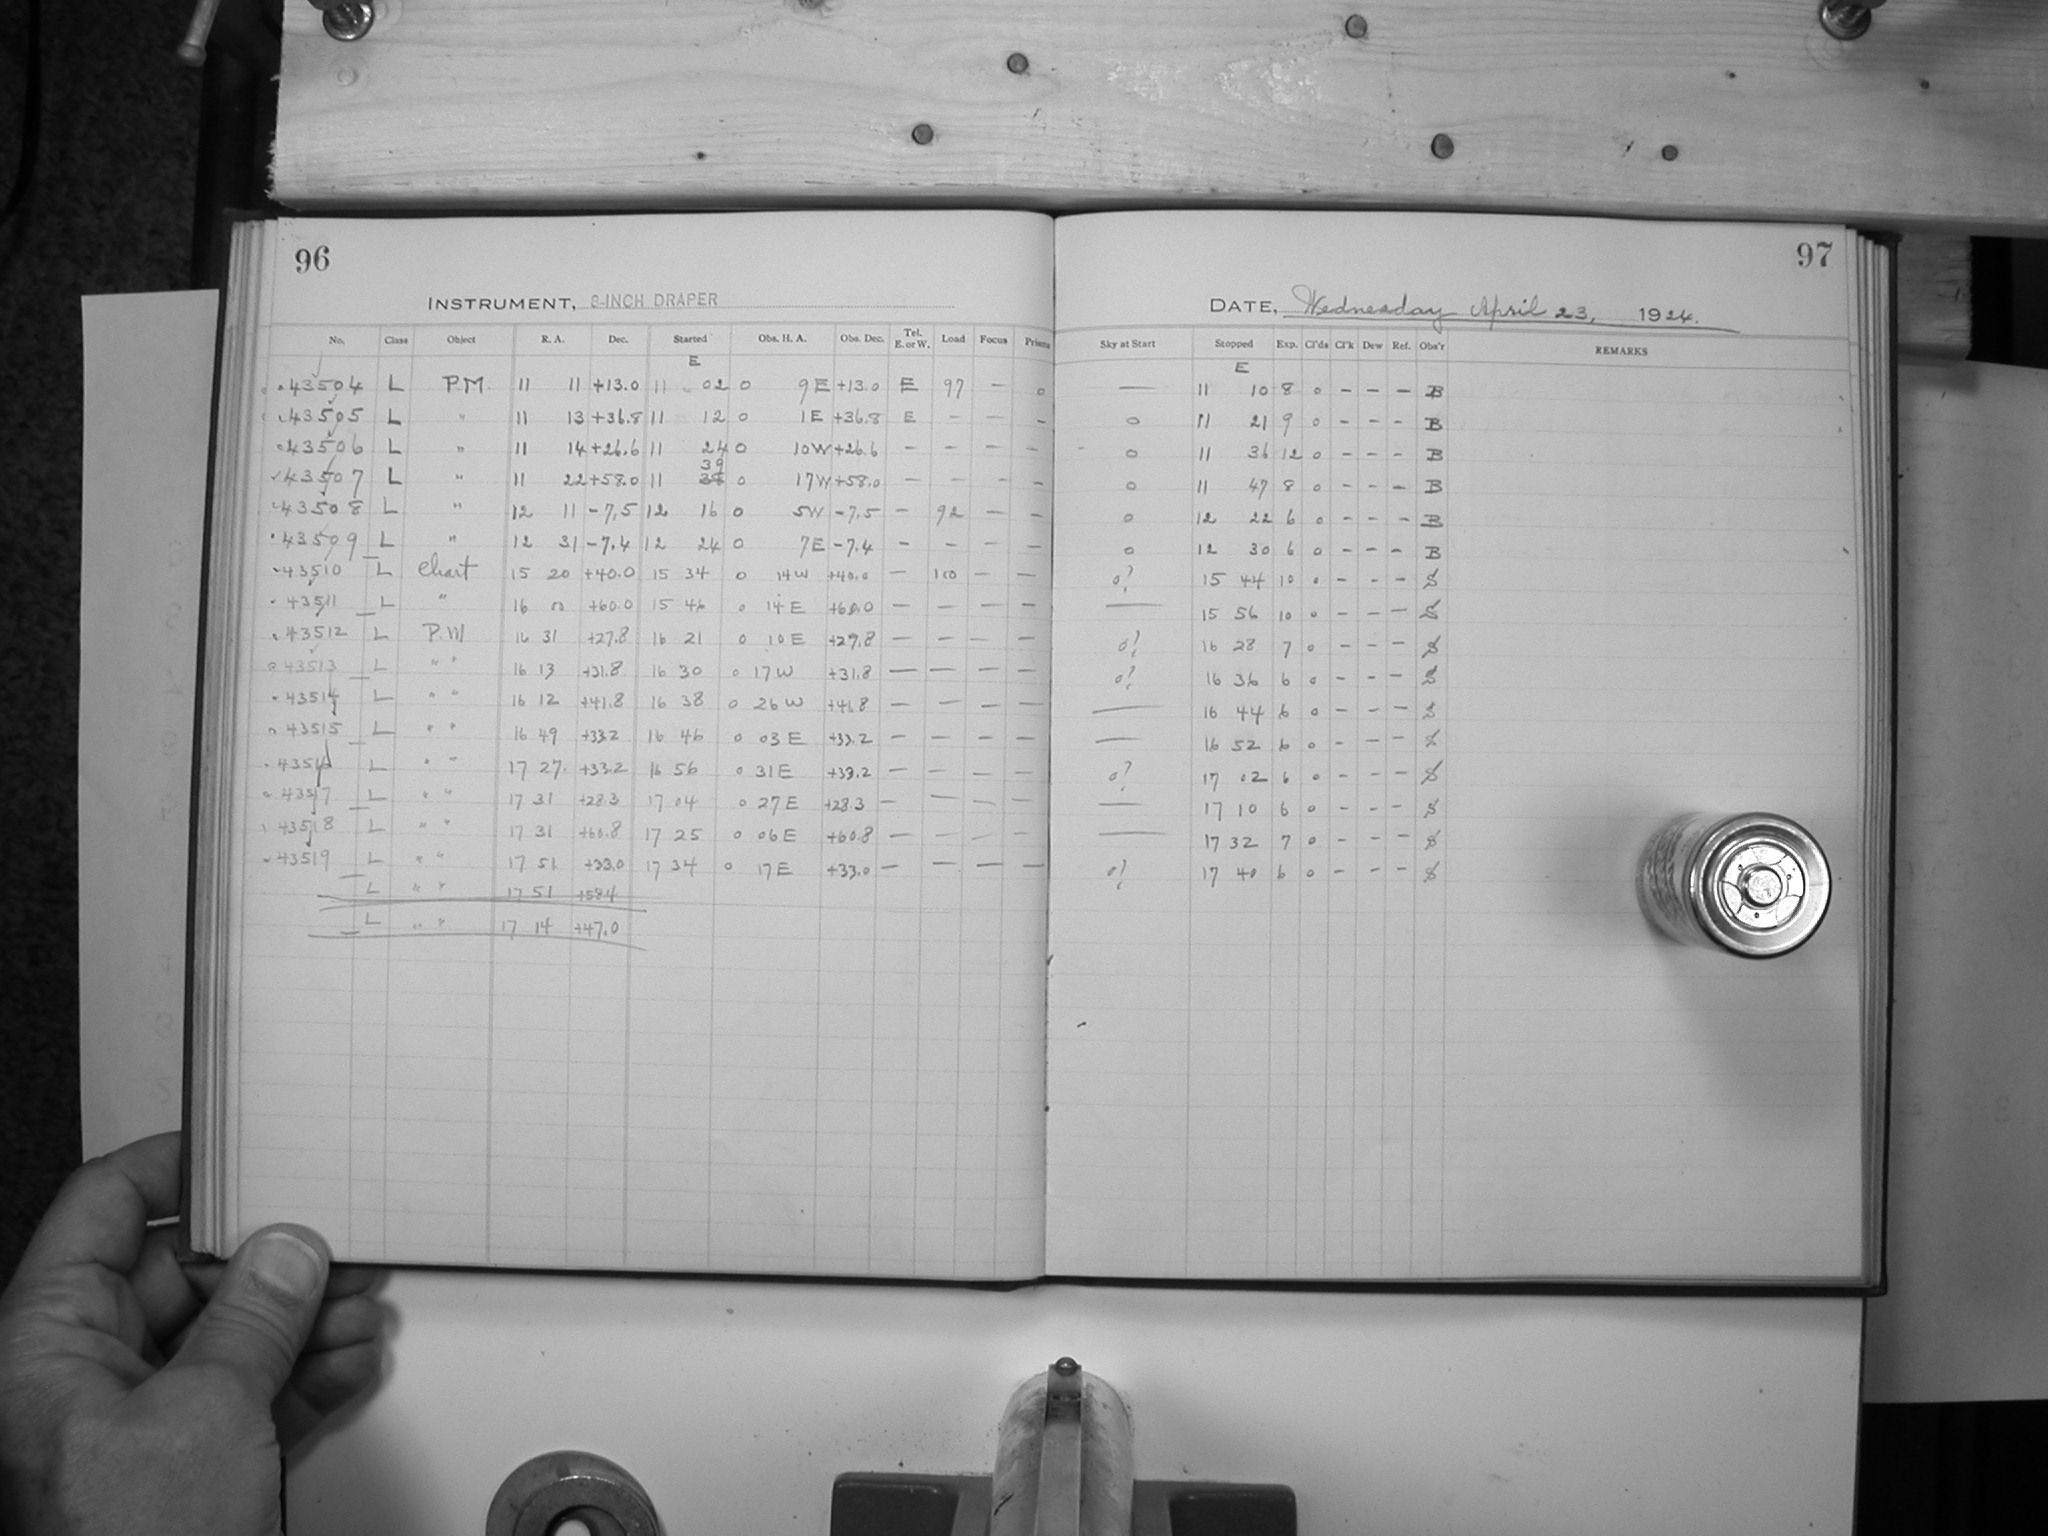 96
INSTRUMENT, 8-INCH DRAPER
No. Class Object R. A. Dec. Started Obs. H. A. Obs. Dec. Tel. E. or W. Load Focus Prisms
E
43504 L P.M 11 11 +13.0 11 02 0 9 E +13.0 E 97 — 0
43505 L " 11 13 +36.8 11 12 0 1 E +36.8 E — — —
43506 L " 11 14 +26.6 11 24 0 10 W +26.6 — — — —
39
43507 L " 11 22 +58.0 11 38 0 17 W +58.0 — — — —
43508 L " 12 11 -7.5 12 16 0 5 W -7.5 — 92 — —
43509 L " 12 31 -7.4 12 24 0 7 E -7.4 — — — —
43510 L Chart 15 20 +40.0 15 34 0 14 W +40.0 — 100 — —
43511 L " 16 0 +60.0 15 46 0 14 E +60.0 — — — —
43512 L P.M 16 31 +27.8 16 21 0 10 E +27.8 — — — —
43513 L " " 16 13 +31.8 16 30 0 17 W +31.8 — — — —
43514 L " " 16 12 +41.8 16 38 0 26 W +41.8 — — — —
43515 L " " 16 49 +33.2 16 46 0 03 E +33.2 — — — —
43516 L " " 17 27 +33.2 16 56 0 31 E +33.2 — — — —
43517 L " " 17 31 +28.3 17 04 0 27 E +28.3 — — — —
43518 L " " 17 31 +60.8 17 25 0 06 E +60.8 — — — —
43519 L " " 17 51 +33.0 17 34 0 17 E +33.0 — — — —
L " " 17 51 +58.4
L " " 17 14 +47.0
97
DATE, Wednesday April 23, 1924.
Sky at Start Stopped Exp. Cl'ds Cl'k Dew Ref. Obs'r REMARKS
E
— 11 10 8 0 - - - B
0 11 21 9 0 - - - B
0 11 36 12 0 - - - B
0 11 47 8 0 - - - B
0 12 22 6 0 - - - B
0 12 30 6 0 - - - B
0? 15 44 10 0 - - - S
— 15 56 10 0 - - - S
0? 16 28 7 0 - - - S
0? 16 36 6 0 - - - S
— 16 44 6 0 - - - S
— 16 52 6 0 - - - S
0? 17 02 6 0 - - - S
— 17 10 6 0 - - - S
— 17 32 7 0 - - - S
0? 17 40 6 0 - - - S